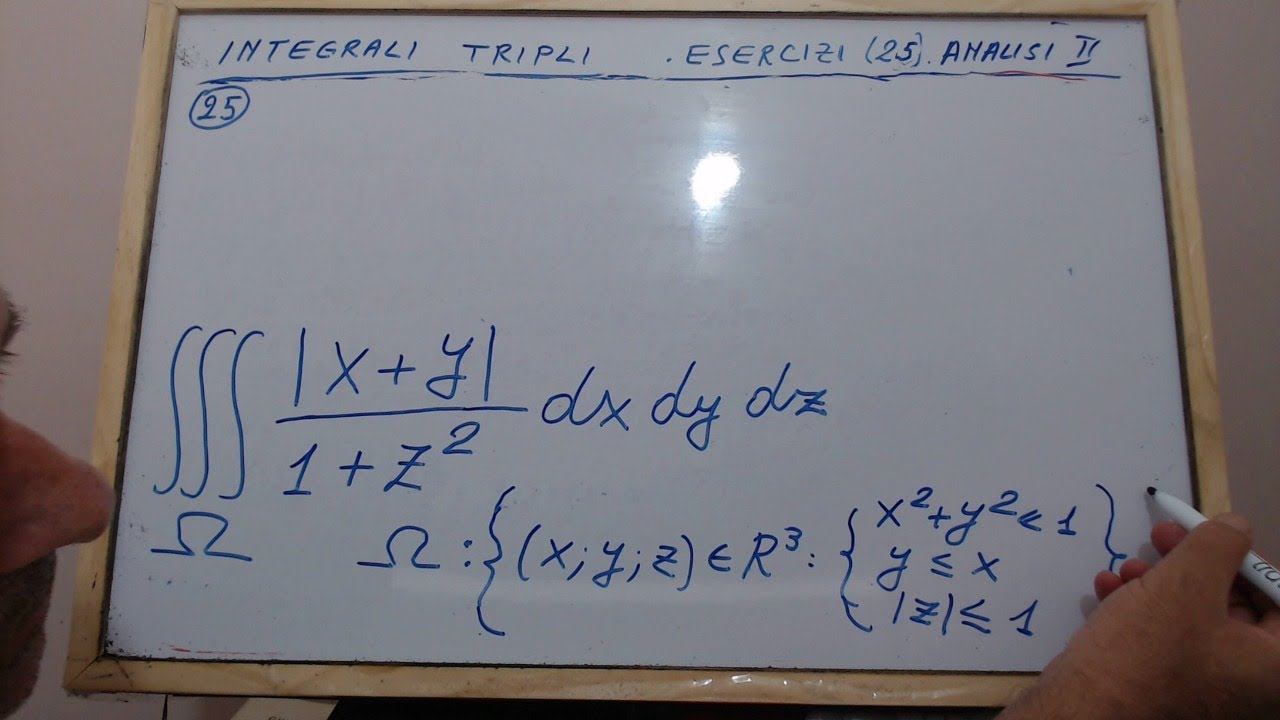 INTEGRALI TRIPLI . ESERCIZI (25). ANALISI II
25
∫∫∫ |x+y| / 1+z² dx dy dz
Ω
Ω : {(x; y; z) ∈ R³ : { x²+y² ≤ 1
y ≤ x
|z| ≤ 1 }